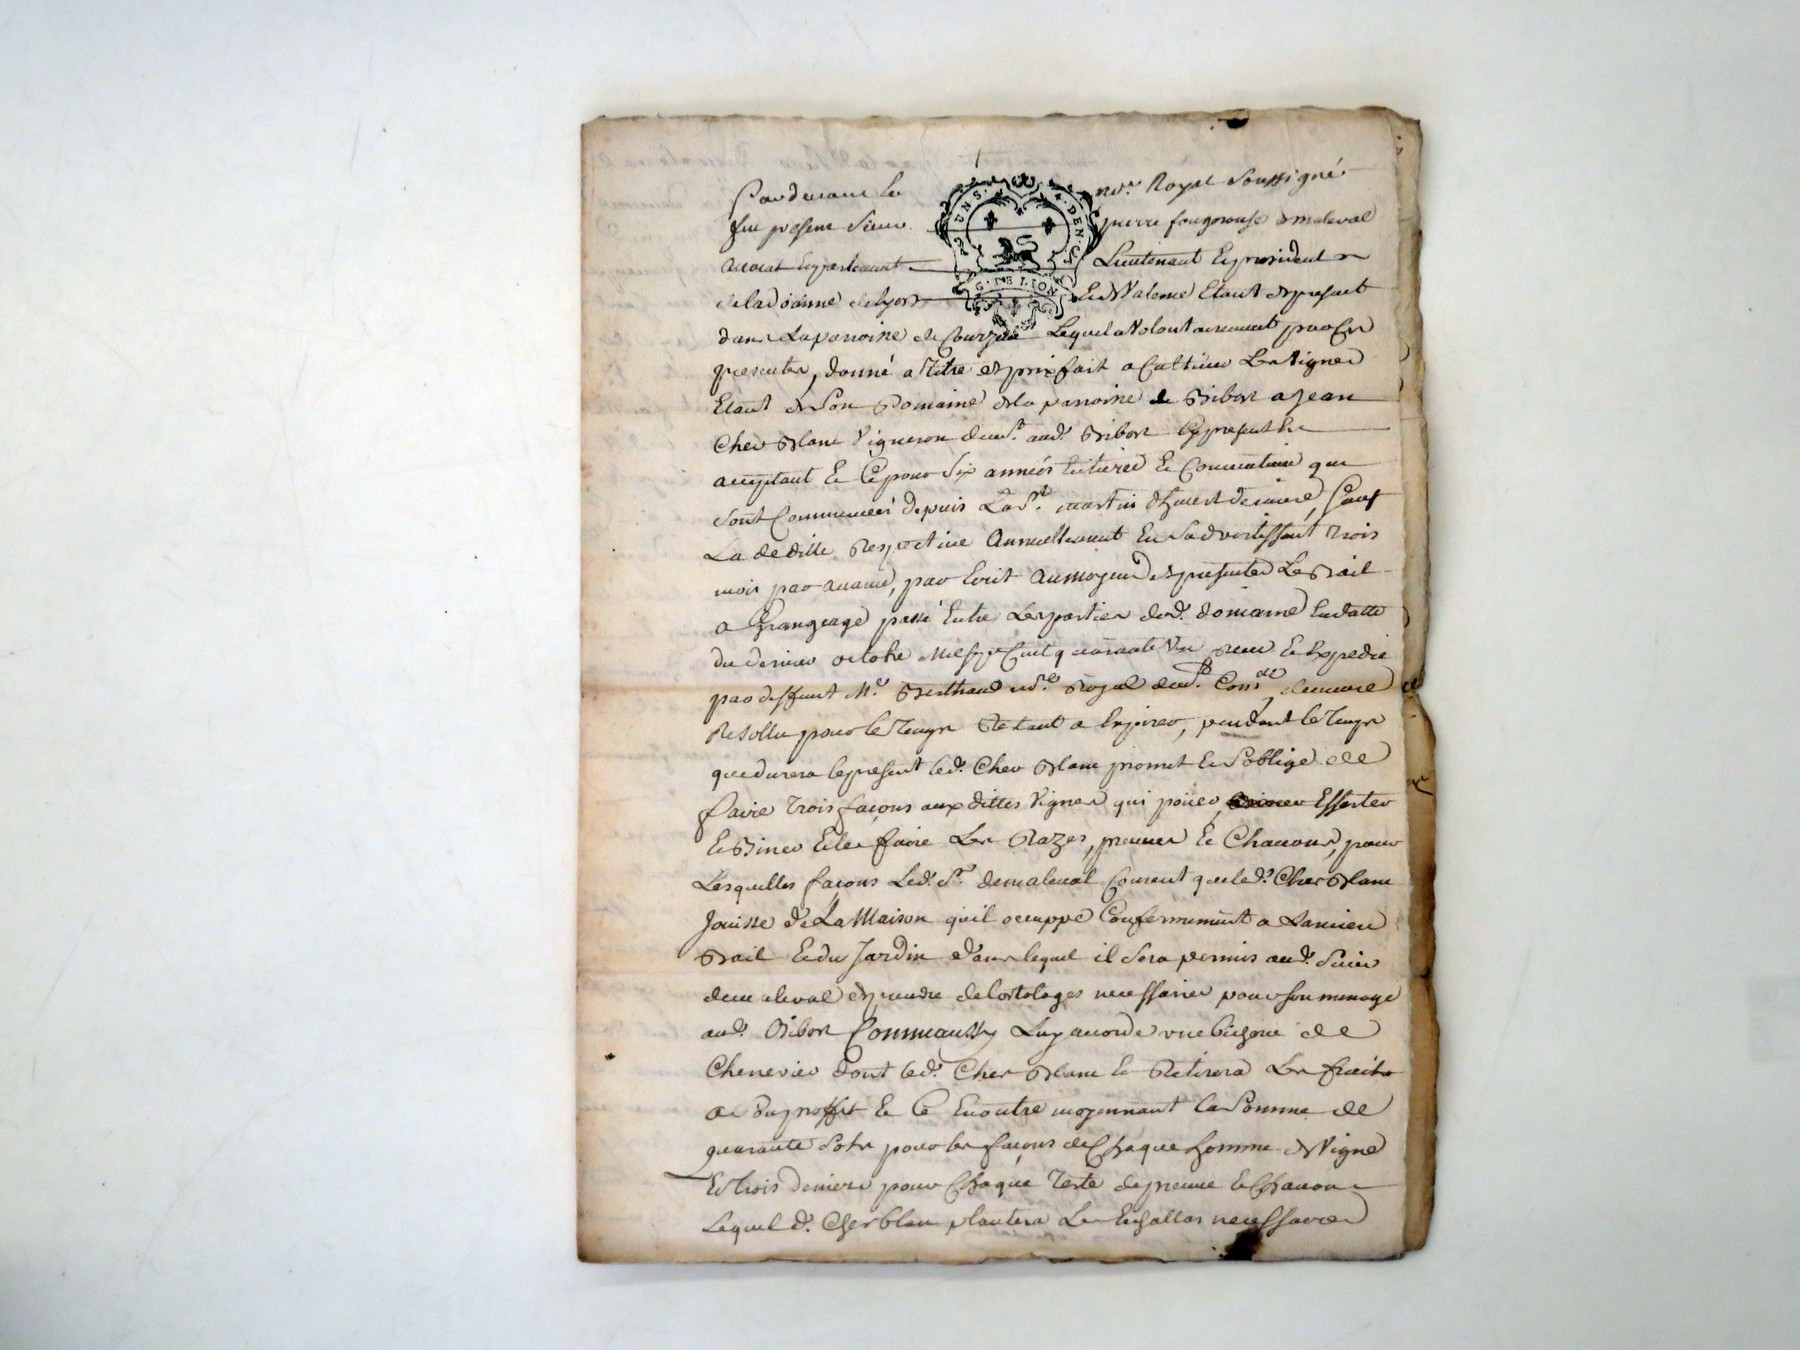 Pardevant le nore. Royal soussigné
fut present sieur pierre fougerouse de maleval
avocat en parlement Lieutenant et president
UNS. DEN.
G. DE LION
de la doanne de lyon et de Valence Etant de present
dans La parroisse de Courzieu Lequel a Volontairement par ces
presentes, donné a titre de prix fait a Cultiver Les Vignes
Etant de Son Domaine de la parroisse de Bibost a Jean
Cher Blanc Vigneron demt. aud. Bibost Cy present
acceptant Et Ce pour Six années Entieres Et Consecutives qui
sont Commencées depuis La St. martin d'hyvert derniere, Sauf
La deditte Respective Annuellement En S'advertissant trois
mois par avance, par Ecrit Au moyen des presentes Le Bail
a Grangeage passé Entre Les parties dud. domaine En datte
du dernier octobre Mil Sept Cent quarante Et Expedié
par deffunt Me. Berthaud nore. Royal demeure
Resollu pour le Temps Restant a Expirer, pendant le Temps
que durera le present led. Cher Blanc promet Et S'obligé de
faire Trois façons aux dittes Vignes qui Essarter
Et Biner Et les faire Les Razes, preuves Et Chavons, pour
Lesquelles façons Led. Sr. de maleval Consent que led. Cher Blanc
Jouisse de La Maison qu'il occuppe Conformement a L'ancien
Bail Et du Jardin dans lequel il Sera permis aud. Sieur
de maleval de prendre de l'ortolages necessaires pour son menage
aud. Bibost Comme aussy Luy accorde une bicheré de
Chenevier dont led. Cher Blanc Retirera Les fruits
a Son proffit Et Ce Enoutre moyennant la Somme de
quarante Sols pour les façons de Chaque homme de Vigne
Et trois deniers pour Chaque Teste de preuve Et Chavon
Lequel d. Cherblan plantera Les Echallas necessaires